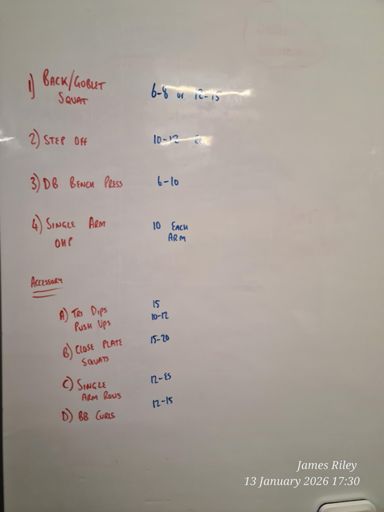 1) BACK/GOBLET SQUAT 6-8 or 12-15
2) STEP OFF 10-12
3) DB BENCH PRESS 6-10
4) SINGLE ARM OHP 10 EACH ARM
ACCESSORY
A) TRI DIPS 15
PUSH UPS 10-12
B) CLOSE PLATE SQUATS 15-20
C) SINGLE ARM ROWS 12-15
D) BB CURLS 12-15
James Riley
13 January 2026 17:30